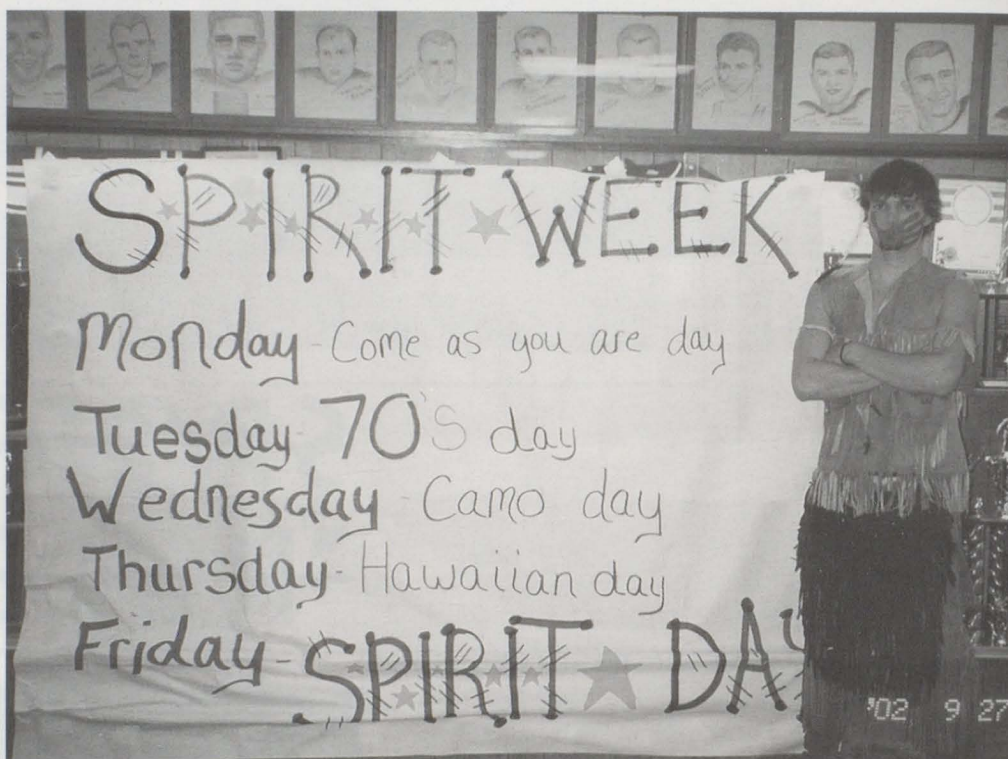 SPIRIT WEEK
Monday - Come as you are day
Tuesday 70's day
Wednesday - Camo day
Thursday - Hawaiian day
Friday - SPIRIT DAY
'02 9 27